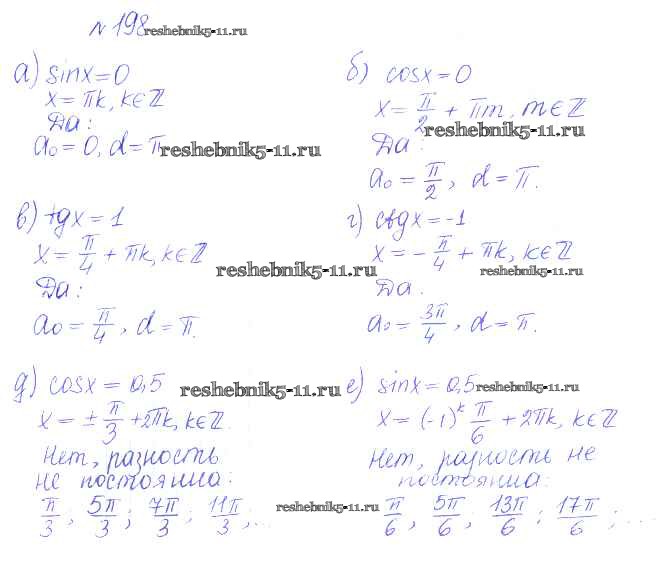 № 198 reshebnik5-11.ru
а) sinx=0
x=πk, k∈ℤ
Да:
a₀=0, d=π reshebnik5-11.ru
б) cosx=0
x=π/2+πm, m∈ℤ
reshebnik5-11.ru
Да:
a₀=π/2, d=π.
в) tgx=1
x=π/4+πk, k∈ℤ
reshebnik5-11.ru
Да:
a₀=π/4, d=π.
г) ctgx=-1
x=-π/4+πk, k∈ℤ
reshebnik5-11.ru
Да.
a₀=3π/4, d=π.
д) cosx=0,5 reshebnik5-11.ru
x=±π/3+2πk, k∈ℤ.
Нет, разность
не постоянна:
π/3; 5π/3; 7π/3; 11π/3;...
reshebnik5-11.ru
е) sinx=0,5 reshebnik5-11.ru
x=(-1)ᵏ π/6+2πk, k∈ℤ
Нет, разность не
постоянна:
π/6, 5π/6; 13π/6; 17π/6;...